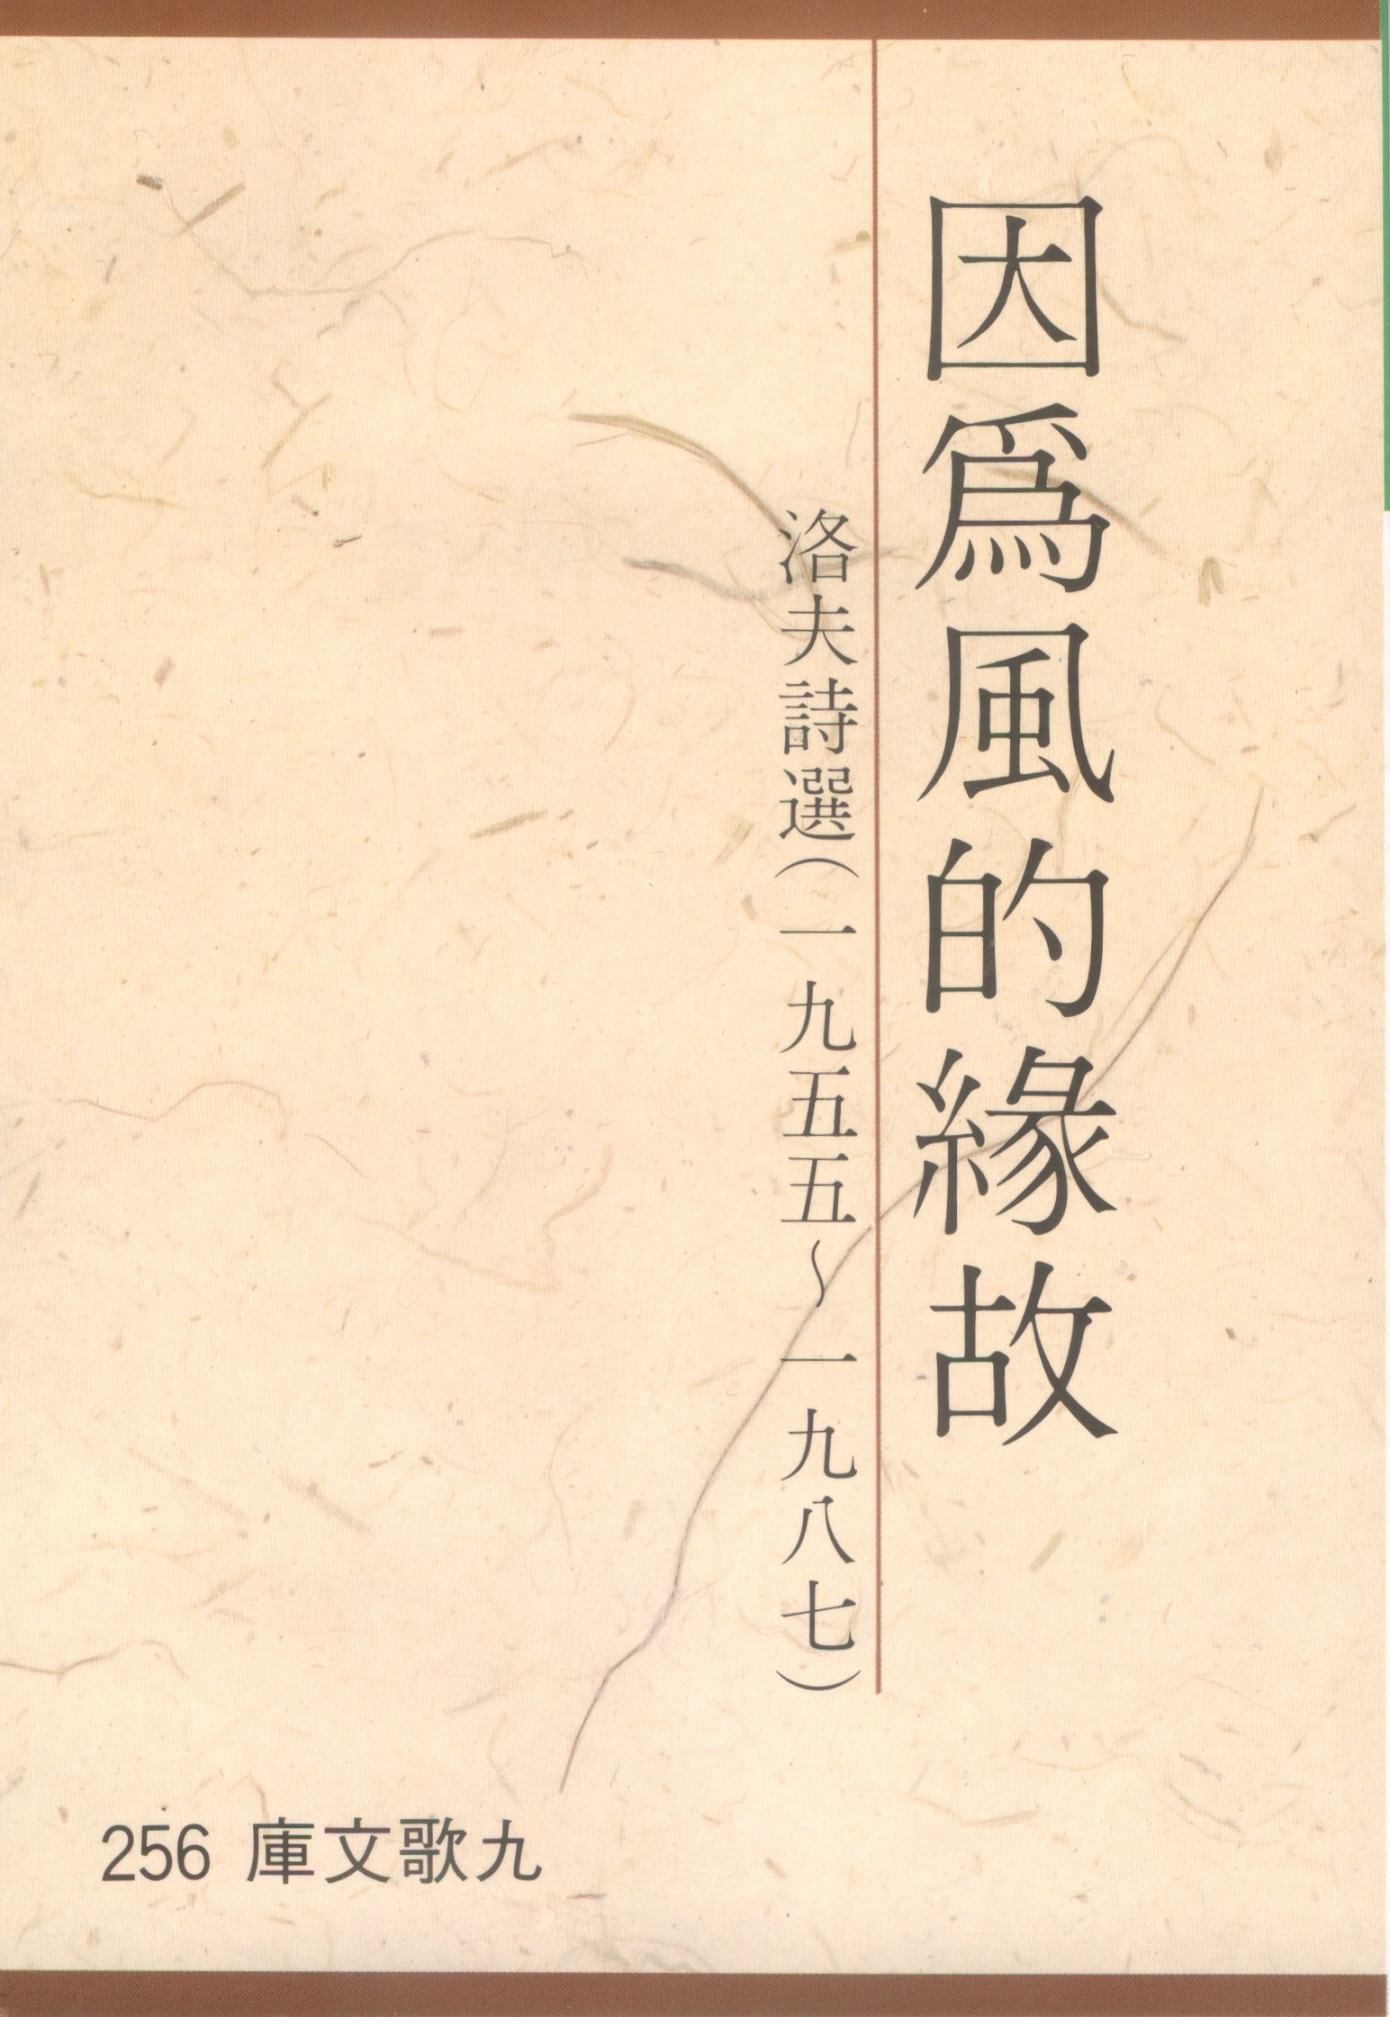 因爲風的緣故
洛夫詩選(一九五五～一九八七)
九歌文庫 256